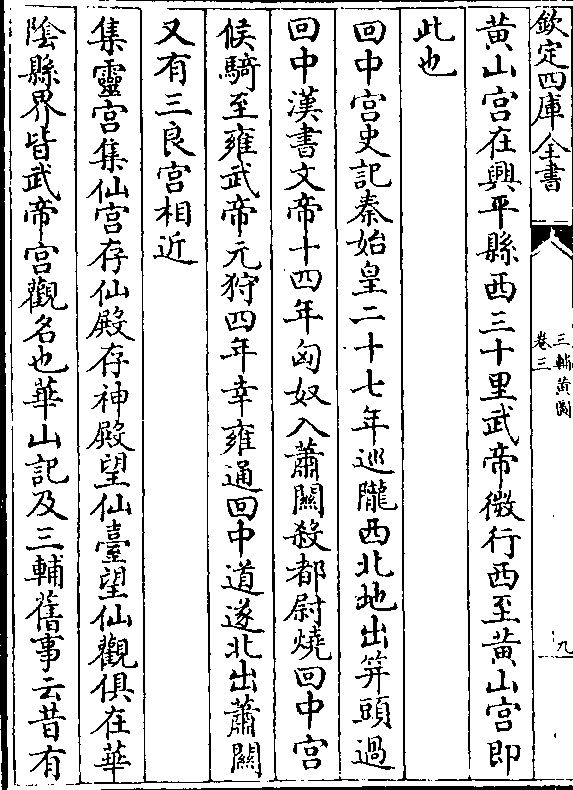 欽定四庫全書
三輔黃圖
卷三
九
黃山宮在興平縣西三十里武帝微行西至黃山宮即
此也
回中宮史記秦始皇二十七年巡隴西北地出笄頭過
回中漢書文帝十四年匈奴入蕭關殺都尉燒回中宮
候騎至雍武帝元狩四年幸雍通回中道遂北出蕭關
又有三良宮相近
集靈宮集仙宮存仙殿存神殿望仙臺望仙觀俱在華
隂縣界皆武帝宮觀名也華山記及三輔舊事云昔有